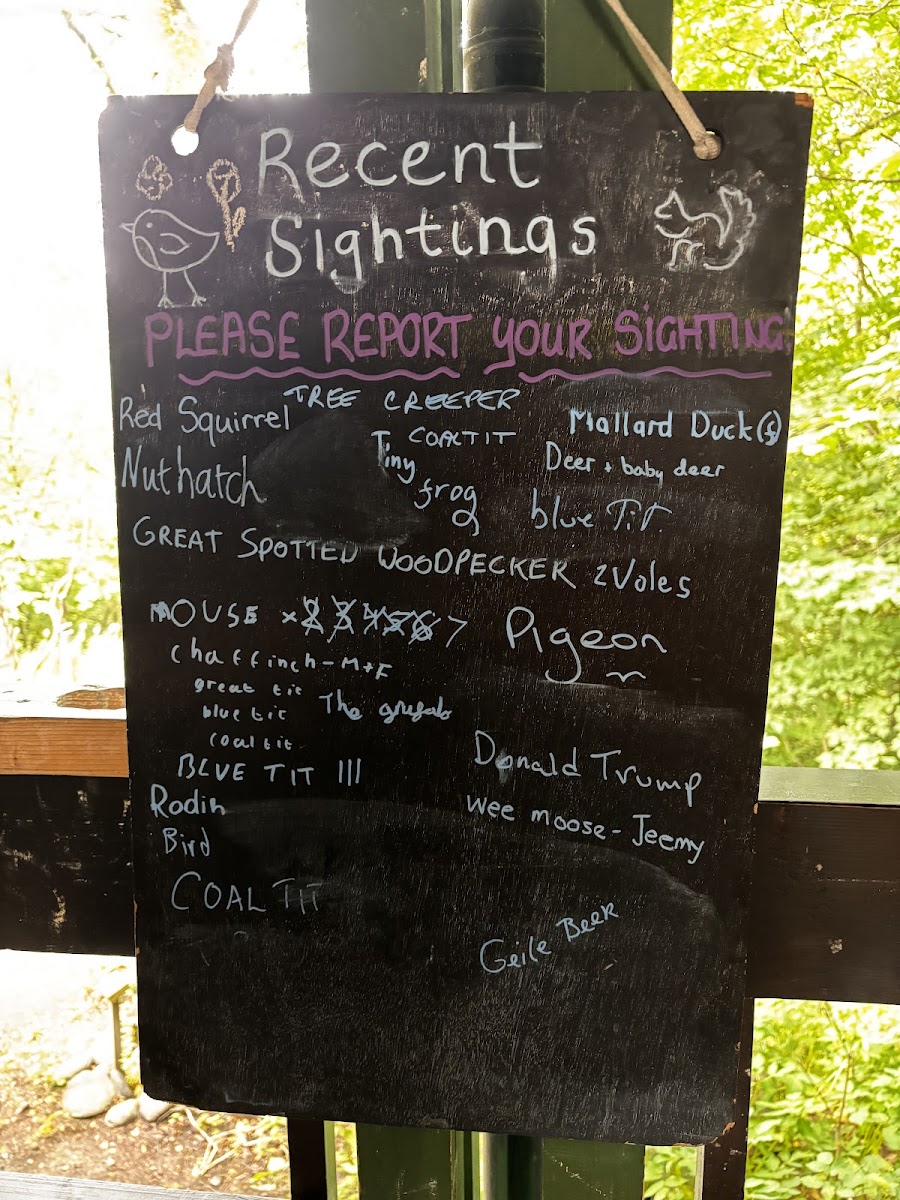 Recent
Sightings
PLEASE REPORT YOUR SIGHTING.
Red Squirrel
TREE CREEPER
Mallard Duck(s)
COALTIT
Tiny
frog
Deer + baby deer
Nuthatch
blue Tit
GREAT SPOTTED WOODPECKER
2 Voles
MOUSE × 2 3 4 5 6 7
Pigeon
Chaffinch - M+F
great tit
blue tit
The grufalo
coal tit
BLUE TIT III
Donald Trump
Rodin
Wee moose - Jeemy
Bird
COAL TIT
Geile Beer